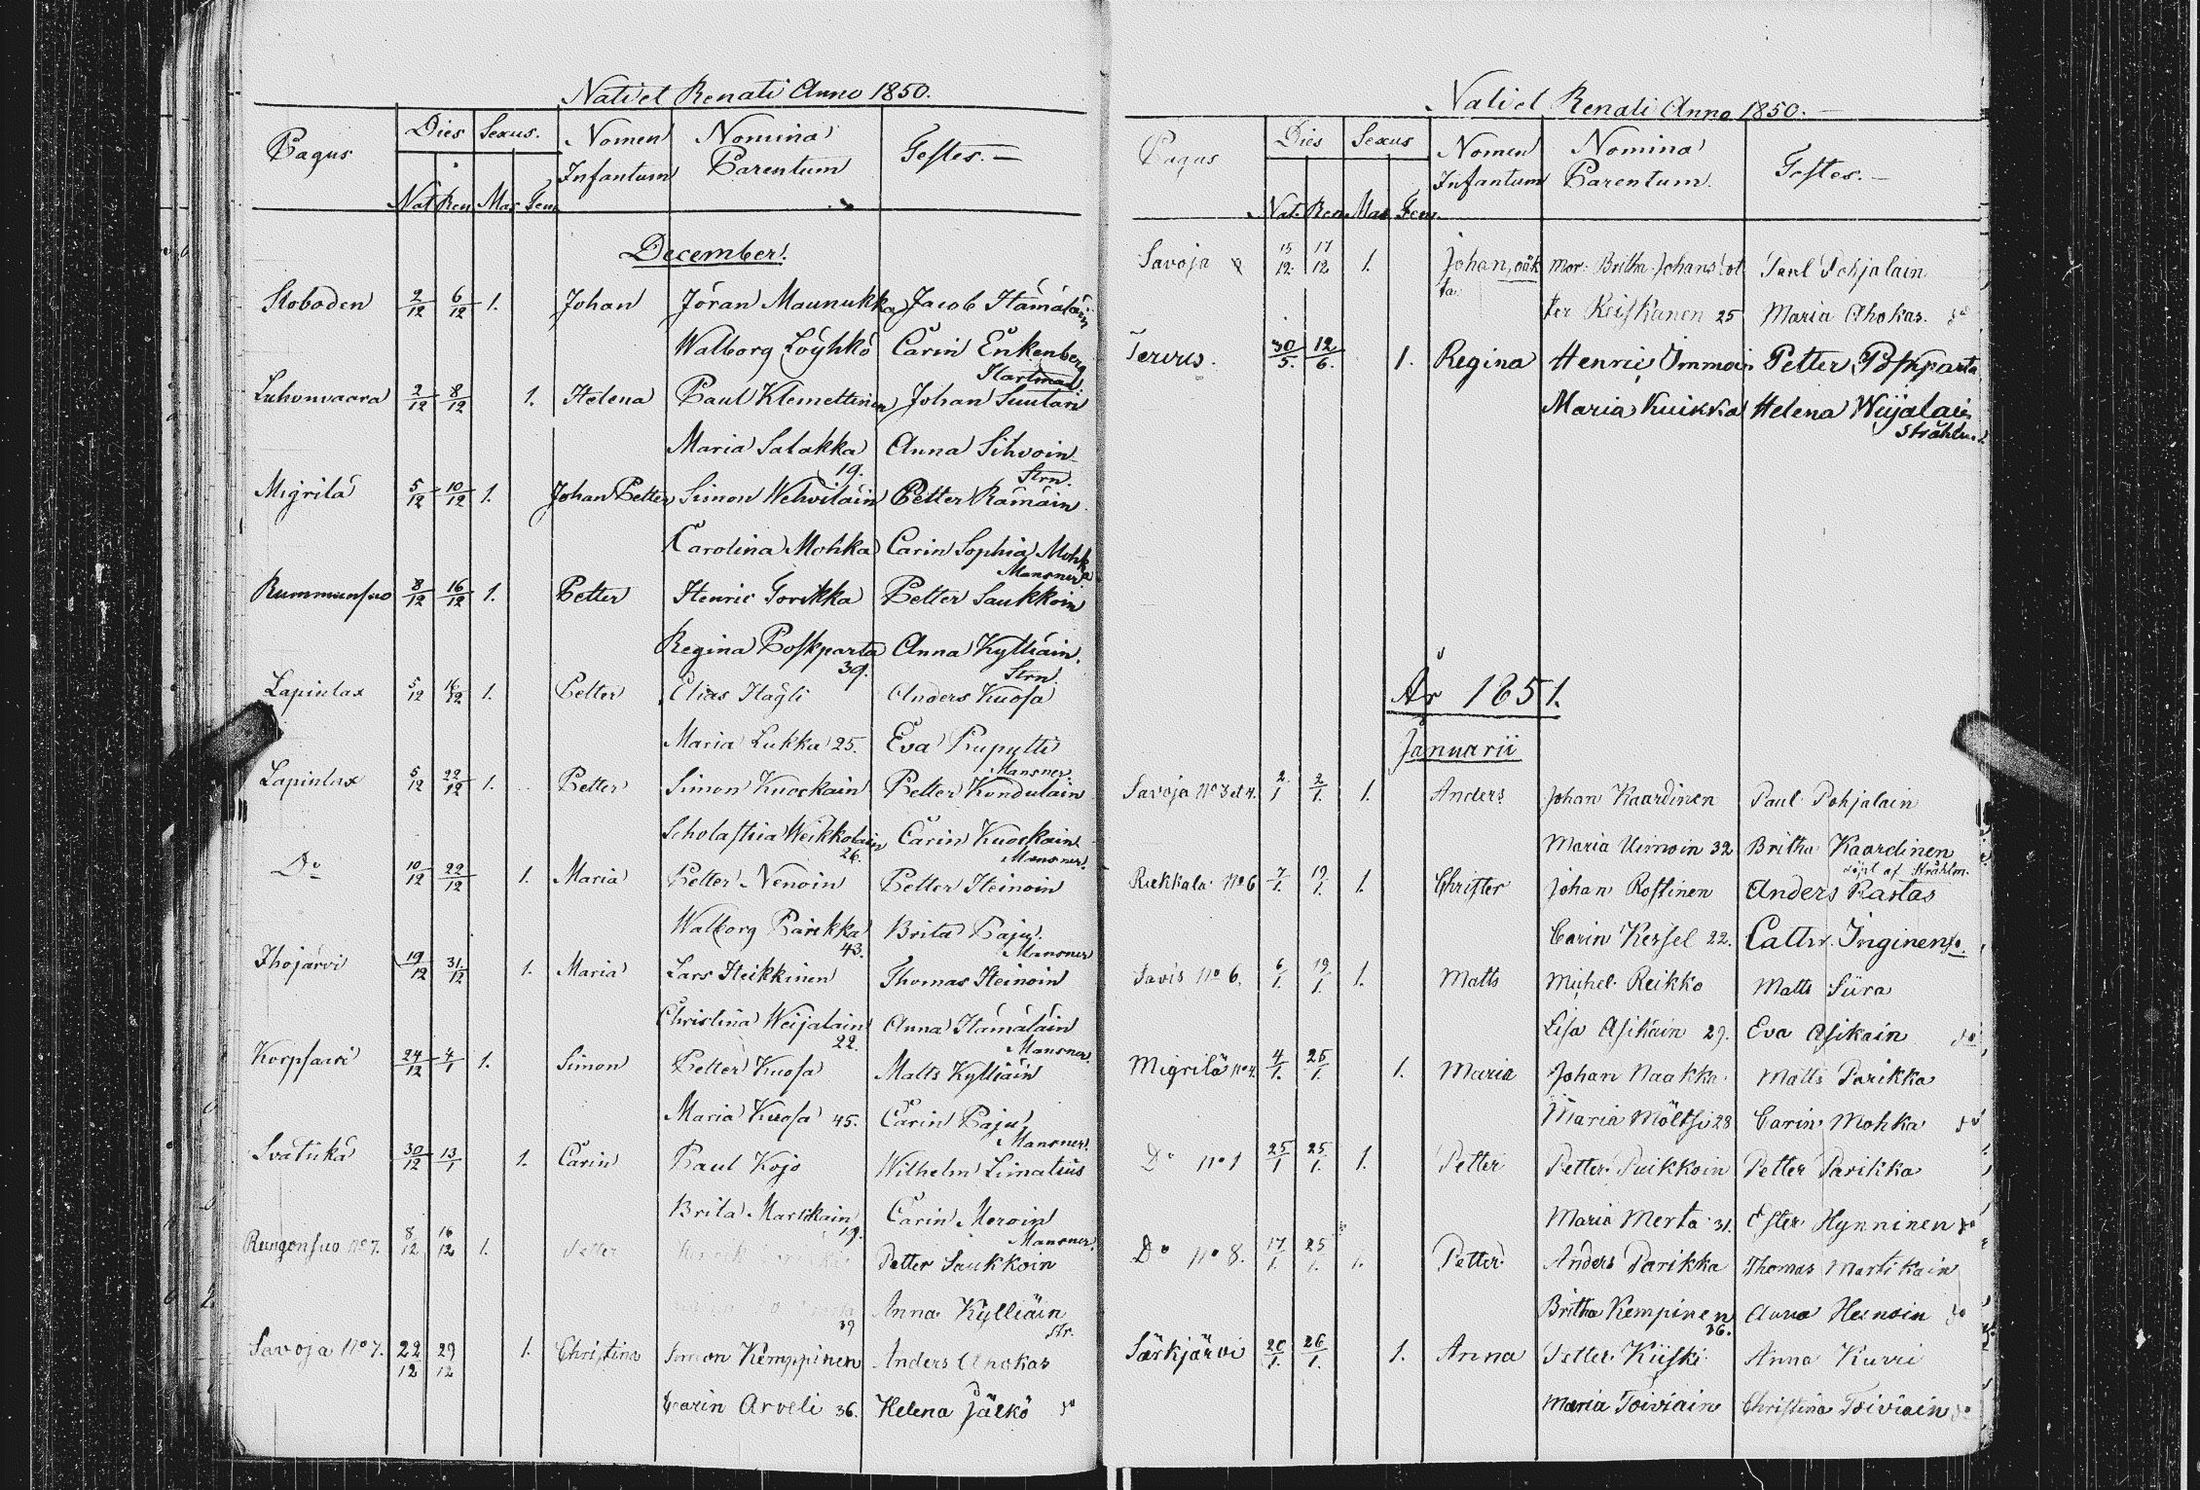 Nati et Renati Anno 1850.
Pagus Dies Sexus. Nomen Infantum Nomina Parentum Testes.
Nat. Ren. Mas. Fem.
December.
Koboden 2/12 6/12 1. Johan Jöran Maunukka Jacob Hämäläin
Walborg Löyhkö Carin Enkenberg
Hartman.
Luhonvaara 2/12 8/12 1. Helena Paul Klemettinen Johan Suutari
Maria Salakka Anna Sihvoin
19. Strn.
Migrilä 5/12 10/12 1. Johan Petter Simon Wehviläin Petter Rämäin
Carolina Mohka Carin Sophia Mohka
Mansner.
Rummunsuo 8/12 16/12 1. Petter Henric Torikka Petter Saukkoin
Regina Poskparta Anna Kylliäin.
39. Strn.
Lapinlax 5/12 16/12 1. Petter Elias Hägli Anders Kuosa
Maria Lukka 25. Eva Pupytti
Mansner.
Lapinlax 5/12 22/12 1. Petter Simon Kuockain Petter Kondulain
Scholastica Weikkolain Carin Kuockain
26. Mansner.
Do 10/12 22/12 1. Maria Petter Nenoin Petter Heinoin
Walborg Pärikka Brita Paju.
43. Mansner
Ihojärvi 19/12 31/12 1. Maria Lars Heikkinen Thomas Heinoin
Christina Weijalain Anna Hämäläin
22. Mansner.
Korpsaari 24/12 4/1 1. Simon Petter Kuosa Matts Kylliäin
Maria Kuosa 45. Carin Paju
Mansner.
Svätikä 30/12 13/1 1. Carin Paul Kojo Wilhelm Limatius
Brita Marckain Carin Meroin
19. Mansner.
Rungonsuo No 7. 8/12 16/12 1. Petter Petter Saukkoin
39 Anna Kylliäin
Str.
Savoja No 7. 22/12 29/12 1. Christina Simon Kemppinen Anders Ahokas
Carin Arveli 36. Helena Jälkö do
Nati et Renati Anno 1850.
Pagus Dies Sexus Nomen Infantum Nomina Parentum. Testes.
Nat. Ren. Mas Fem.
Savoja 15/12 17/12 1. Johan, oäk
ta Mor: Britha Johansdot Paul Pohjalain
ter Keiskanen 25 Maria Ahokas. do
Tervus. 30/5. 12/6. 1. Regina Henric Immoin Petter Poskparta
Maria Kuikka Helena Wiijalain
Stråhlm.
År 1851.
Januarii
Savoja No 3 et 4. 2/1 2/1. 1. Anders Johan Kaardinen Paul Pohjalain
Maria Uimoin 32 Britha Kaardinen
döpt af Stråhlm.
Riekkala No 6 7/1. 19/1. 1. Christer Johan Rostinen Anders Rastas
Carin Kessel 22. Cathr. Inginen do.
Savis No 6. 6/1. 19/1 1. Matts Michel Reikko Matts Siira
Lisa Asikain 29. Eva Asikain do
Migrilä No 4. 4/1. 25/1. 1. Maria Johan Naakka Matts Parikka
Maria Möltsi 28 Carin Mohka do
Do No 1 25/1 25/1. 1. Petter Petter Puikkoin Petter Parikka
Maria Merta 31. Ester Hynninen do
Do No 8. 17/1. 25/1. 1. Petter Anders Parikka Thomas Martikain
Britha Kempinen Anna Heinoin do
36.
Särkjärvi 20/1. 26/1. 1. Anna Petter Kiiski Anna Kurri
Maria Toiviain Christina Toiviain do